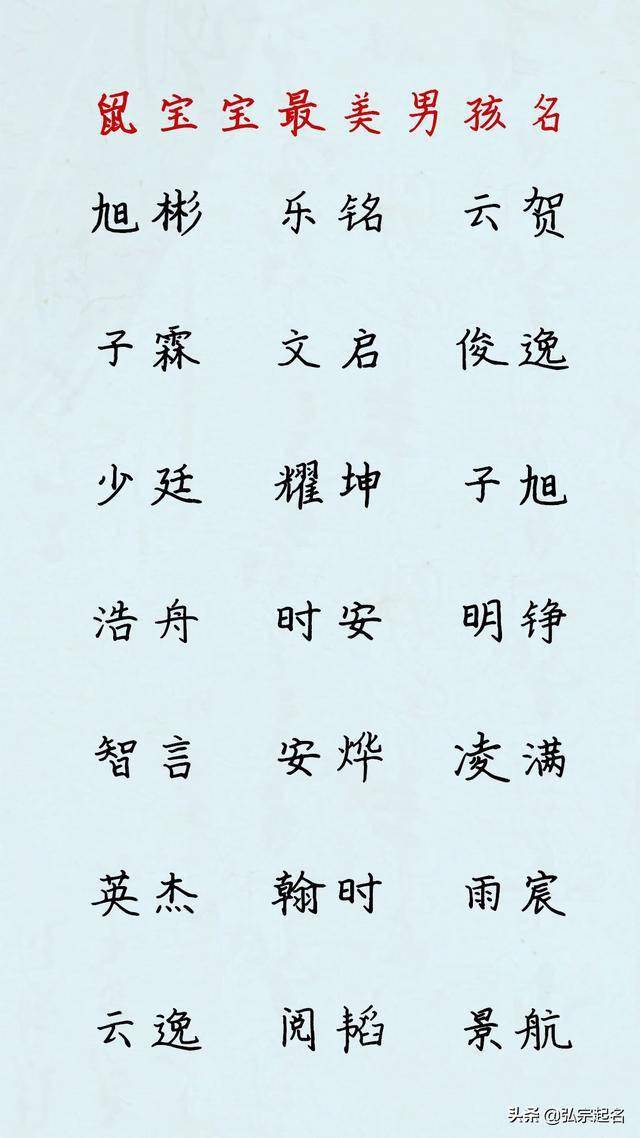 鼠宝宝最美男孩名
旭彬 乐铭 云贺
子霖 文启 俊逸
少廷 耀坤 子旭
浩舟 时安 明铮
智言 安烨 凌满
英杰 翰时 雨宸
云逸 阅韬 景航
头条 @弘宗起名